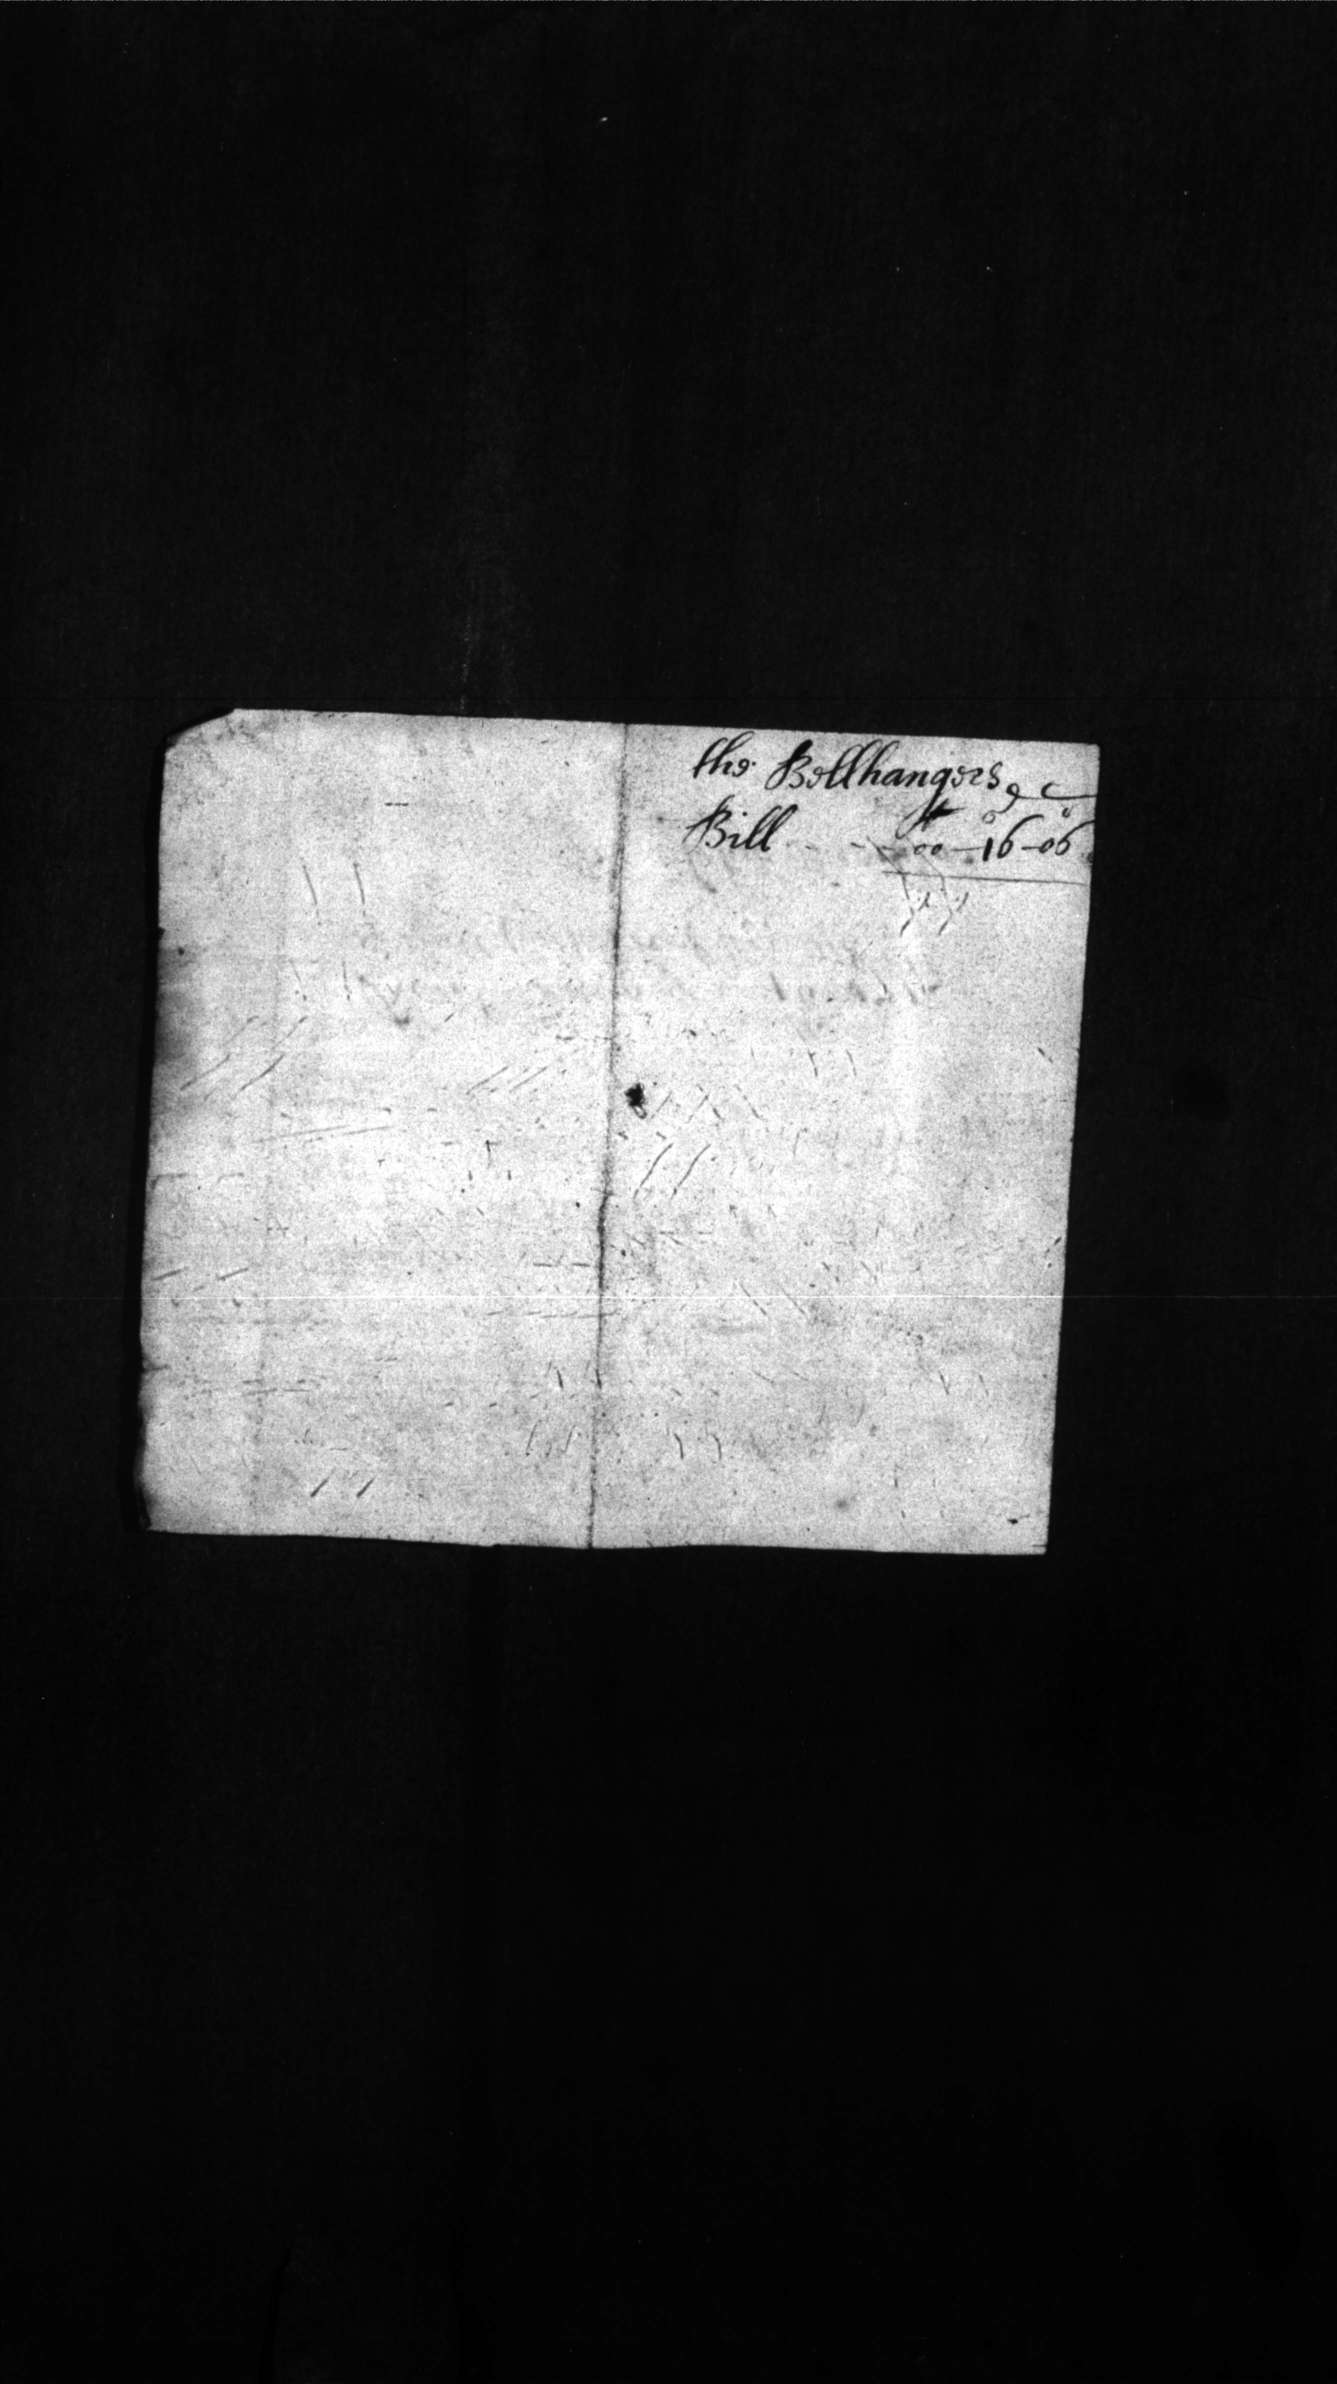 the Bellhangers
Bill - - - 00-16-06